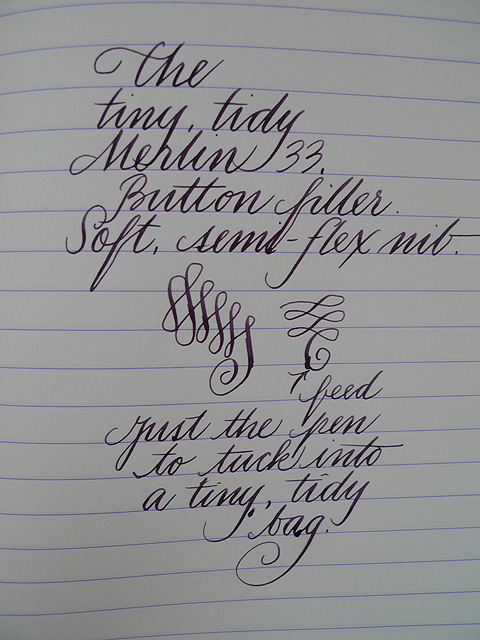 The
tiny, tidy
Merlin 33.
Button filler.
Soft, semi-flex nib.
feed
just the pen
to tuck into
a tiny, tidy
bag.